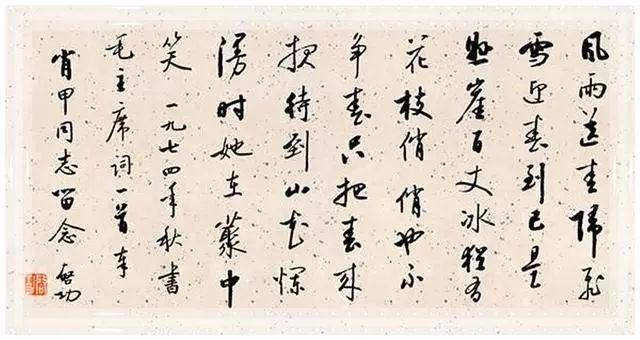 风雨送春归飞
雪迎春到已是
悬崖百丈冰犹有
花枝俏俏也不
争春只把春来
报待到山花烂
漫时她在藂中
笑 一九七四年秋书
毛主席词一首奉
肖甲同志留念 启功